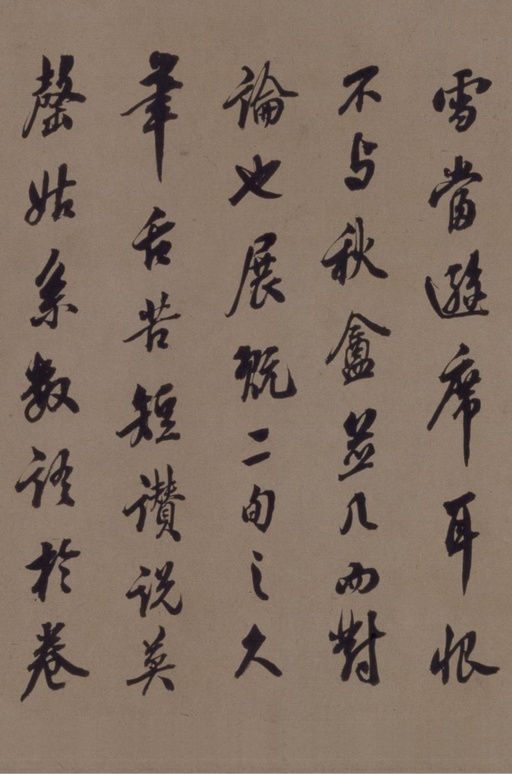 雪當避席耳恨
不与秋盦並几而對
論也展玩二旬之久
筆舌苦短讚說莫
罄姑系数語於卷